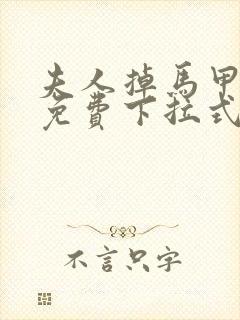 夫人掉馬甲
免費下拉式
不言只字